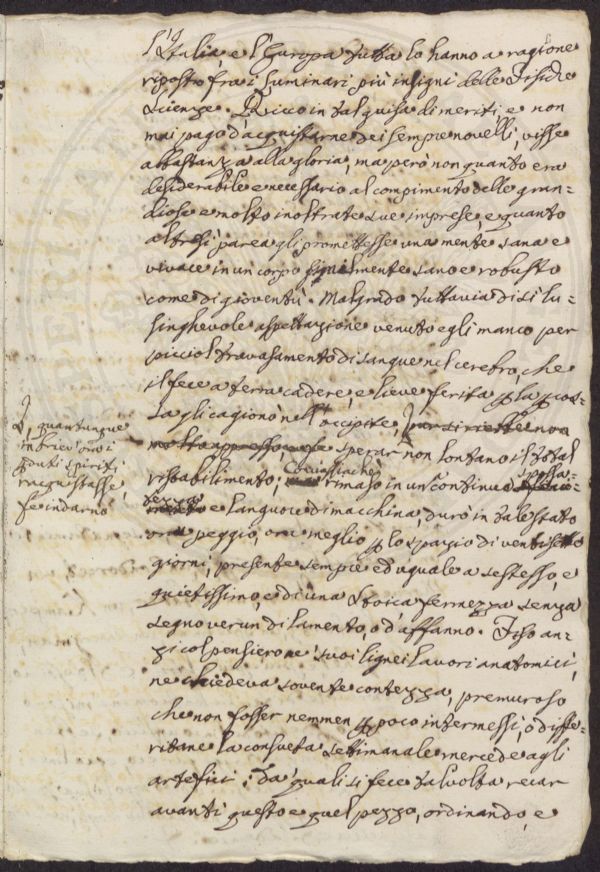 l'Italia, e l'Europa tutta lo hanno a ragione
riposto fra i luminari più insigni delle Fisiche
Scienze. Ricco in tal guisa di meriti, e non
mai pago d'acquistarne dei sempre novelli, visse
abbastanza alla gloria, ma però non quanto era
desiderabile e necessario al compimento delle gran=
diose e molto inoltrate sue imprese, e quanto
altresì parea gli promettesse una mente sana e
vivace in un corpo egualmente sano e robusto
come di gioventù. Malgrado tuttavia di sì lu=
singhevole aspettazione venuto egli manco per
picciol travasamento di sangue nel cerebro, che
il fece a terra cadere, e lieve ferita per la
sa gli cagionò nell'occipite
E, quantunque
in brev'ora i
gniti spiriti
racquistasse,
fe indarno
sperar non lontano il total
ristabilimento, Conciossiachè rimaso in un continuo spossa-
tezza e languore di macchina, durò in tale stato
ora peggio, ora meglio per lo spazio di ventisette
giorni, presente sempre ed uguale a se stesso, e
quietissimo, e di una Stoica fermezza senza
segno verun di lamento, o d'affanno. Fiso an=
zi col pensiero ne' suoi lignei lavori anatomici,
ne chiedeva sovente contezza, premuroso
che non fosser nemmen per poco intermessi, o diffe-
ritane la consueta settimanale mercede agli
artefici; da' quali si fece talvolta recar
avanti questo e quel pezzo, ordinando, e